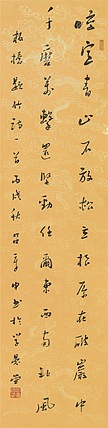 咬定青山不放松立根原在破巖中
千磨萬擊還堅勁任爾東西南北風
板橋題竹詩一首丙戌秋吕章申書於